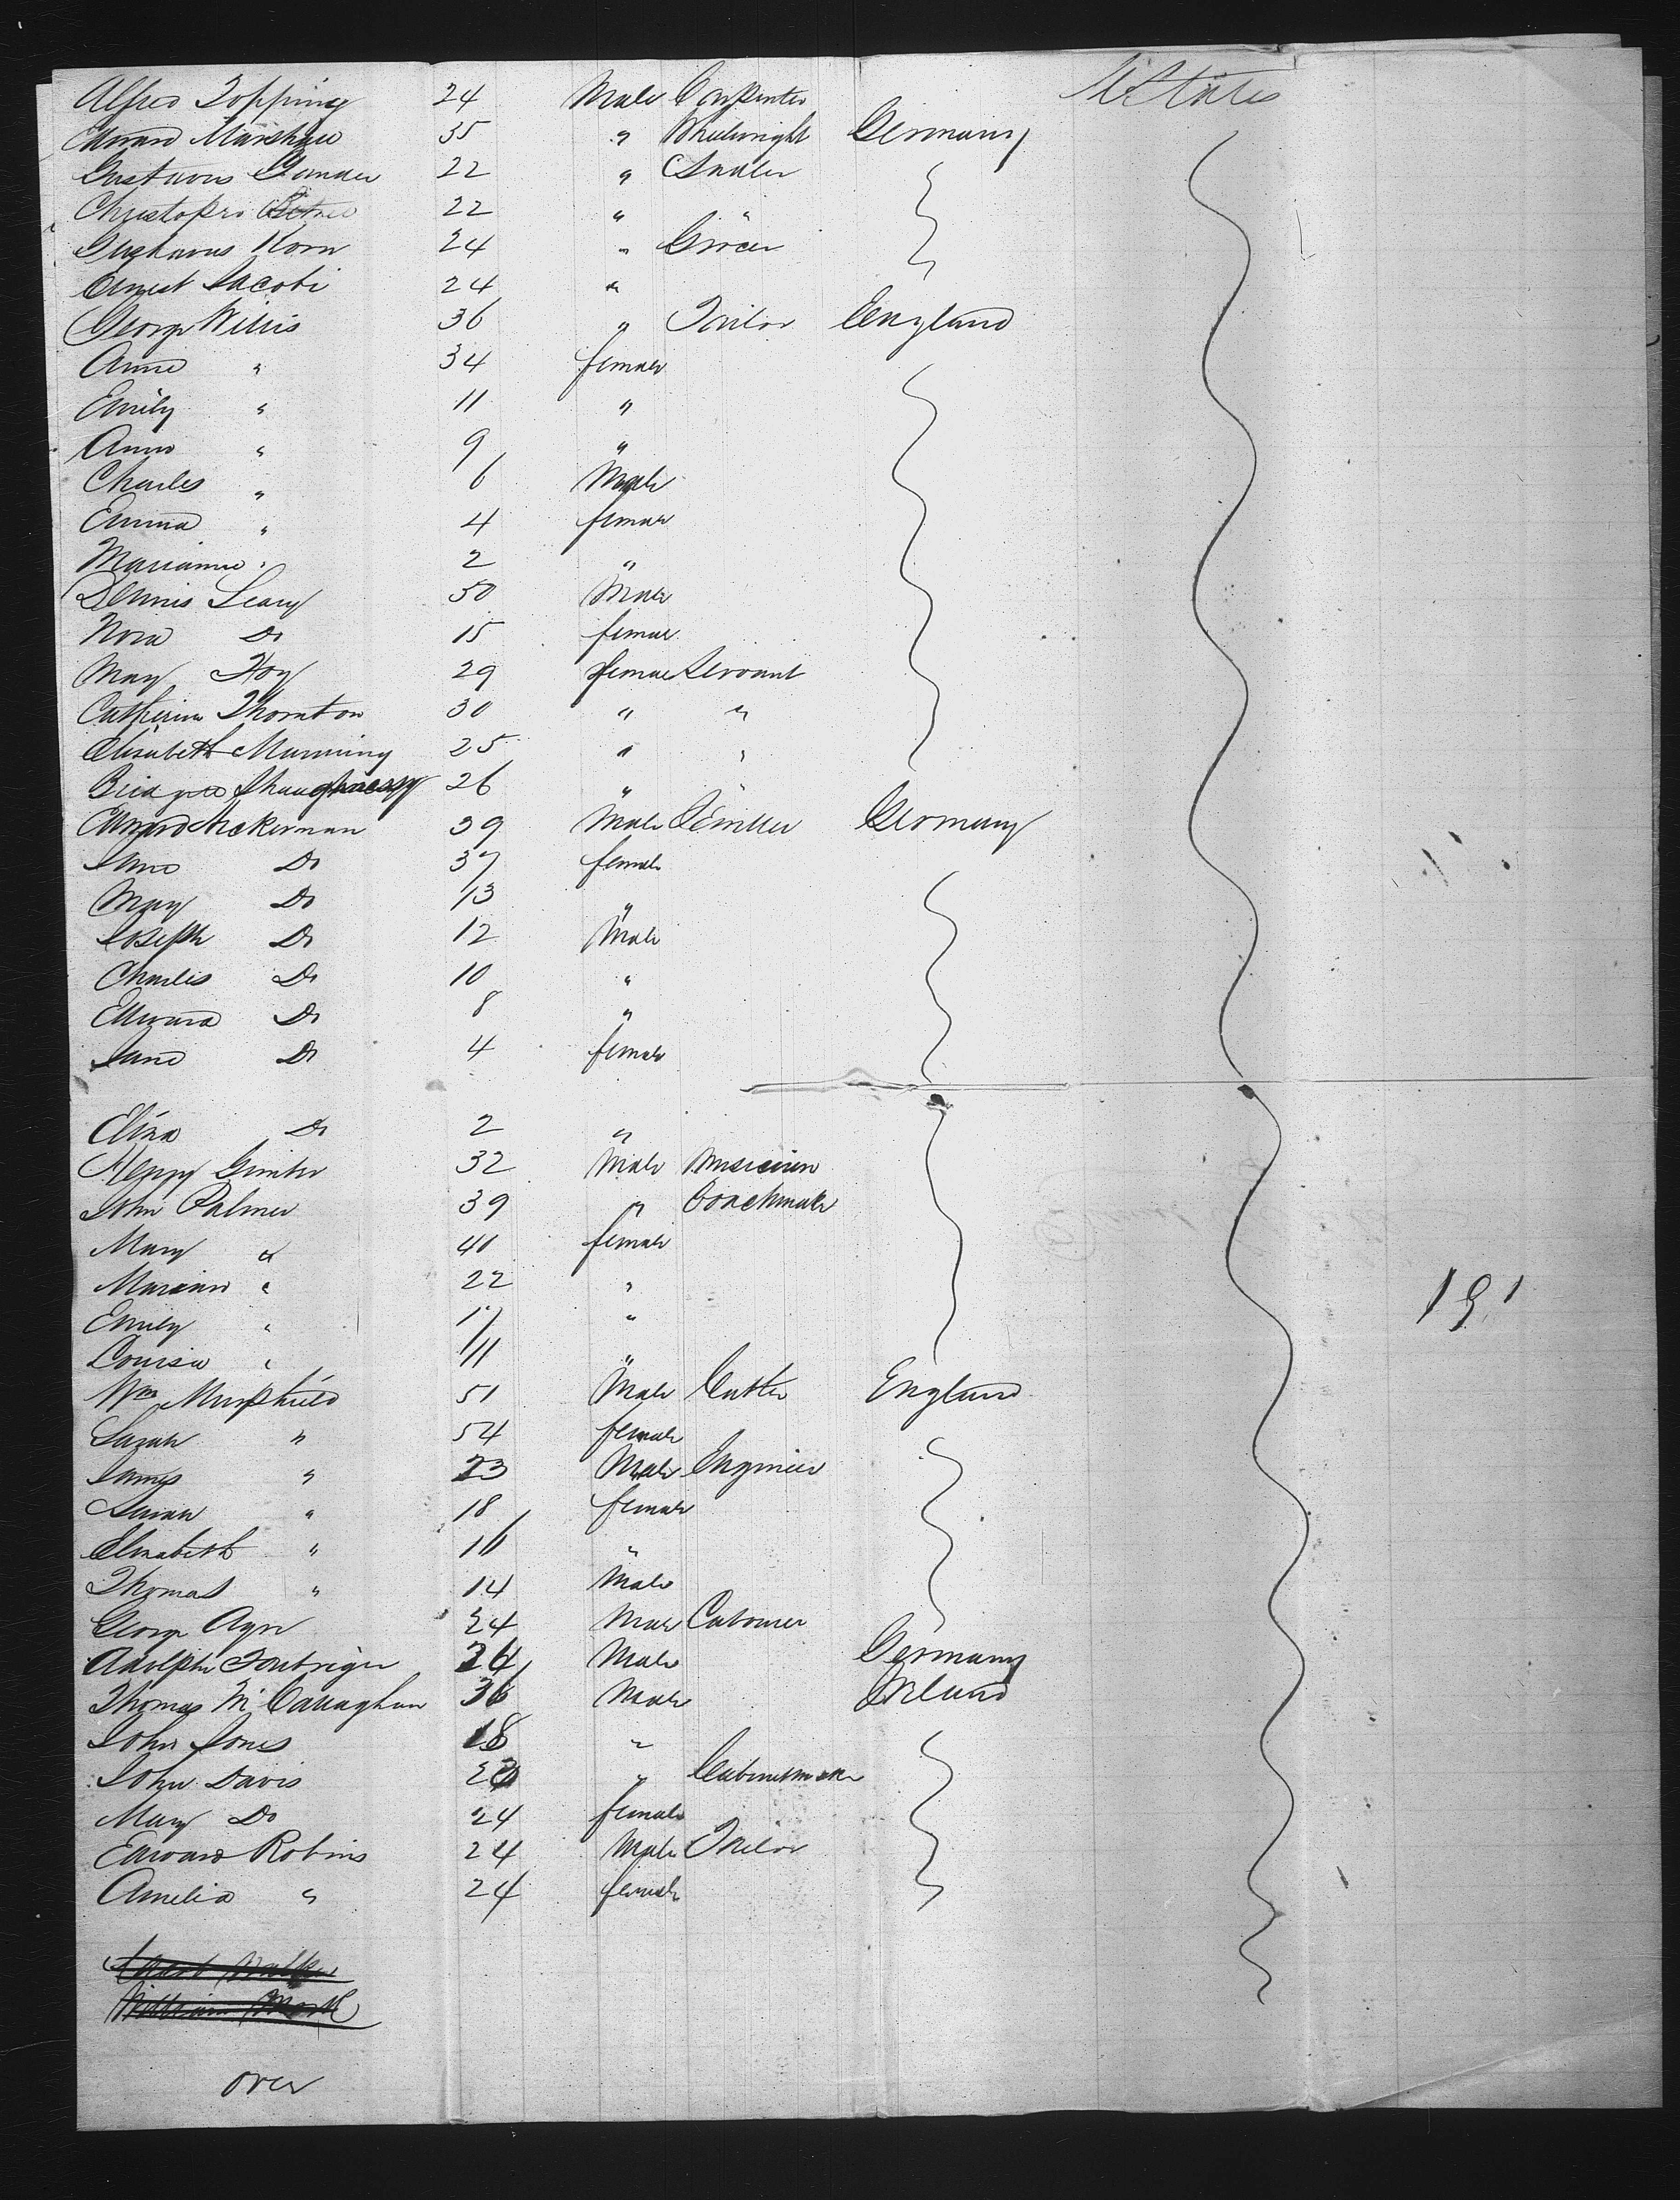 Alfred Topping 24 Male Carpenter U States
Edward Marshall 35 " Wheelwright Germany
Gustavus 22 " Sadler
22 " "
Gustavus Korn 24 " Grocer
Ernest Jacobi 24 "
George Willis 36 " Tailor England
Anne " 34 female
Emily " 11 "
Anne " 9 "
Charles " 6 Male
Emma " 4 female
Marianne " 2 "
Dennis Leary 50 Male
Nora Do 15 female
Mary Hoy 29 female Servant
Catherine Thornton 30 " "
Elisabeth Manning 25 " "
Bridget Shaughnessy 26 " "
Edward Ackerman 39 Male Germany
Jane Do 37 female
Mary Do 13 "
Joseph Do 12 Male
Charles Do 10 "
Edward Do 8 "
Jane Do 4 female
Eliza Do 2 "
Henry Gunter 32 Male Musician
John Palmer 39 " Coachmaker
Mary " 40 female
Marian " 22 "
Emily " 17 "
191
Louisa " 11 "
Wm 51 Male Cutler England
Sarah " 54 female
James " 23 Male Engineer
Sarah " 18 female
Elisabeth " 16 "
Thomas " 14 Male
George Ayre 24 Male Labourer
Adolphe 24 Male Germany
Thomas Mc Callaghan 36 Male Ireland
John Jones 18 "
John Davis " Cabinetmaker
Mary Do 24 female
Edward Robins 24 Male Tailor
Amelia " 24 female
over